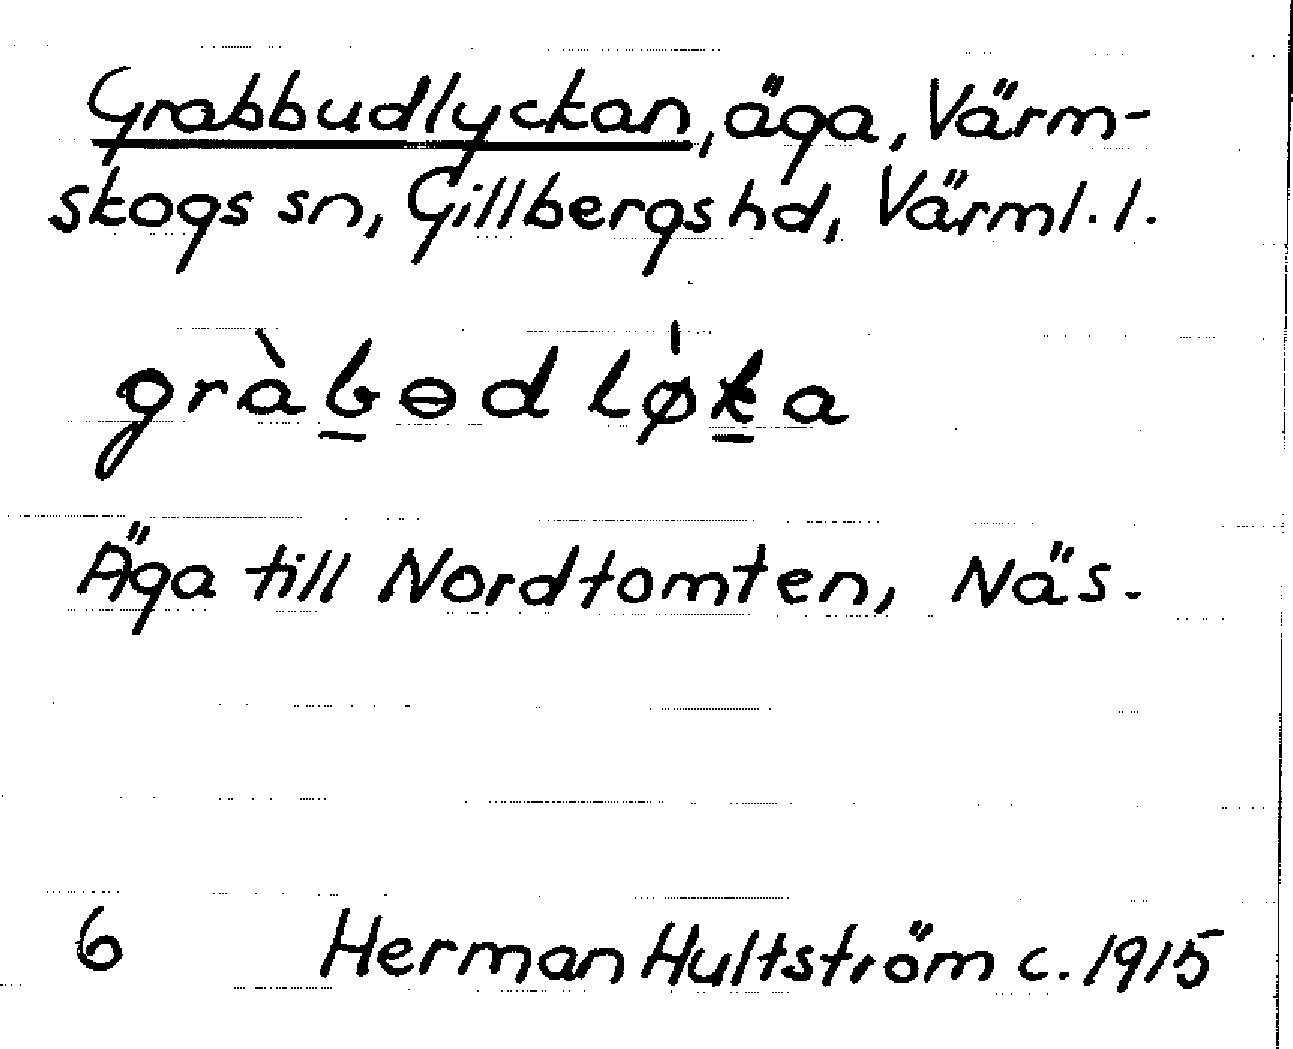 Grabbudlyckan, äga, Värm-
skogs sn, Gillbergs hd, Värml. l.
gràb̲ɵdlø̍k̲a
Äga till Nordtomten, Näs.
6 Herman Hultström c. 1915